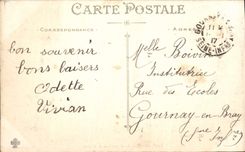 CARTE POSTALE
CORRESPONDANCE
ADRESSE
bon souvenir
bons baisers
Odette
Vivian
Melle Boivin
Institutrice
Rue des Ecoles
Gournay-en-Bray